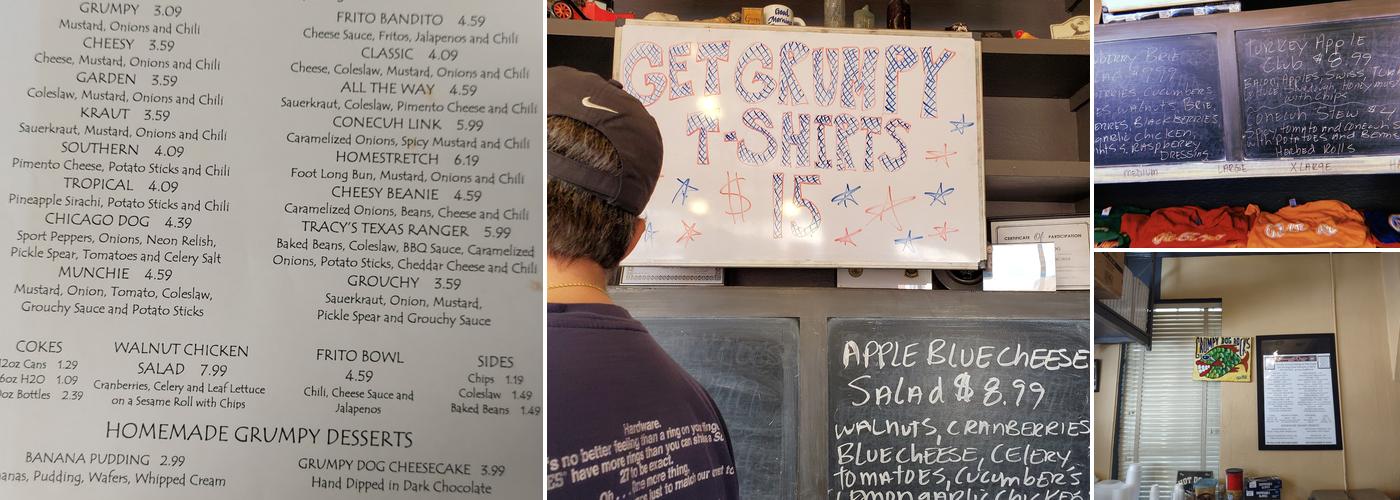 GRUMPY 3.09
Mustard, Onions and Chili
CHEESY 3.59
Cheese, Mustard, Onions and Chili
GARDEN 3.59
Coleslaw, Mustard, Onions and Chili
KRAUT 3.59
Sauerkraut, Mustard, Onions and Chili
SOUTHERN 4.09
Pimento Cheese, Potato Sticks and Chili
TROPICAL 4.09
Pineapple Sirachi, Potato Sticks and Chili
CHICAGO DOG 4.39
Sport Peppers, Onions, Neon Relish,
Pickle Spear, Tomatoes and Celery Salt
MUNCHIE 4.59
Mustard, Onion, Tomato, Coleslaw,
Grouchy Sauce and Potato Sticks
FRITO BANDITO 4.59
Cheese Sauce, Fritos, Jalapenos and Chili
CLASSIC 4.09
Cheese, Coleslaw, Mustard, Onions and Chili
ALL THE WAY 4.59
Sauerkraut, Coleslaw, Pimento Cheese and Chili
CONECUH LINK 5.99
Caramelized Onions, Spicy Mustard and Chili
HOMESTRETCH 6.19
Foot Long Bun, Mustard, Onions and Chili
CHEESY BEANIE 4.59
Caramelized Onions, Beans, Cheese and Chili
TRACY'S TEXAS RANGER 5.99
Baked Beans, Coleslaw, BBQ Sauce, Caramelized
Onions, Potato Sticks, Cheddar Cheese and Chili
GROUCHY 3.59
Sauerkraut, Onion, Mustard,
Pickle Spear and Grouchy Sauce
COKES
12oz Cans 1.29
6oz H2O 1.09
0oz Bottles 2.39
WALNUT CHICKEN
SALAD 7.99
Cranberries, Celery and Leaf Lettuce
on a Sesame Roll with Chips
FRITO BOWL
4.59
Chili, Cheese Sauce and
Jalapenos
SIDES
Chips 1.19
Coleslaw 1.49
Baked Beans 1.49
HOMEMADE GRUMPY DESSERTS
BANANA PUDDING 2.99
anas, Pudding, Wafers, Whipped Cream
GRUMPY DOG CHEESECAKE 3.99
Hand Dipped in Dark Chocolate
Good Morning
GET GRUMPY
T-SHIRTS
$ 15
CERTIFICATE Of PARTICIPATION
APPLE BLUECHEESE
Salad $8.99
WALNUTS, CRANBERRIES
BLUECHEESE, CELERY,
TOMATOES, CUCUMBER'S
LEMON GARLIC CHICKEN
Hardware.
's no better feeling than a ring on your finger
have more rings than you can
27 to be exact.
Oh . . . One more thing.
just to match our
BRIE
CUCUMBERS
WALNUTS, BRIE,
BLACKBERRIES
GARLIC CHICKEN,
RASPBERRY
DRESSING
TURKEY Apple
Club $8.99
BACON, APPLES, SWISS,
with chips
CONECUH STEW
Spicy tomato and conecuh
with POTATOES AND
Herbed Rolls
MEDIUM
LARGE
X LARGE
GRUMPY DOG ROCKS